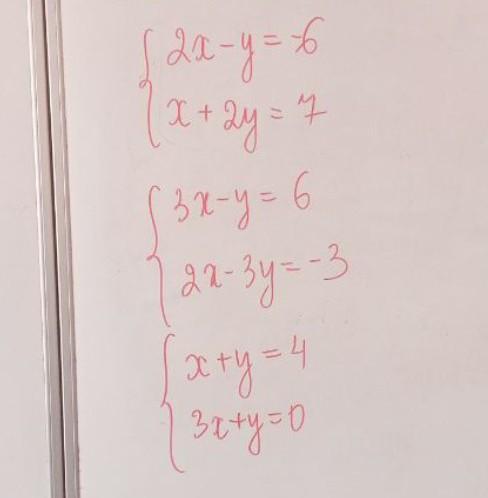 2x-y=-6
x+2y=7
3x-y=6
2x-3y=-3
x+y=4
3x+y=0